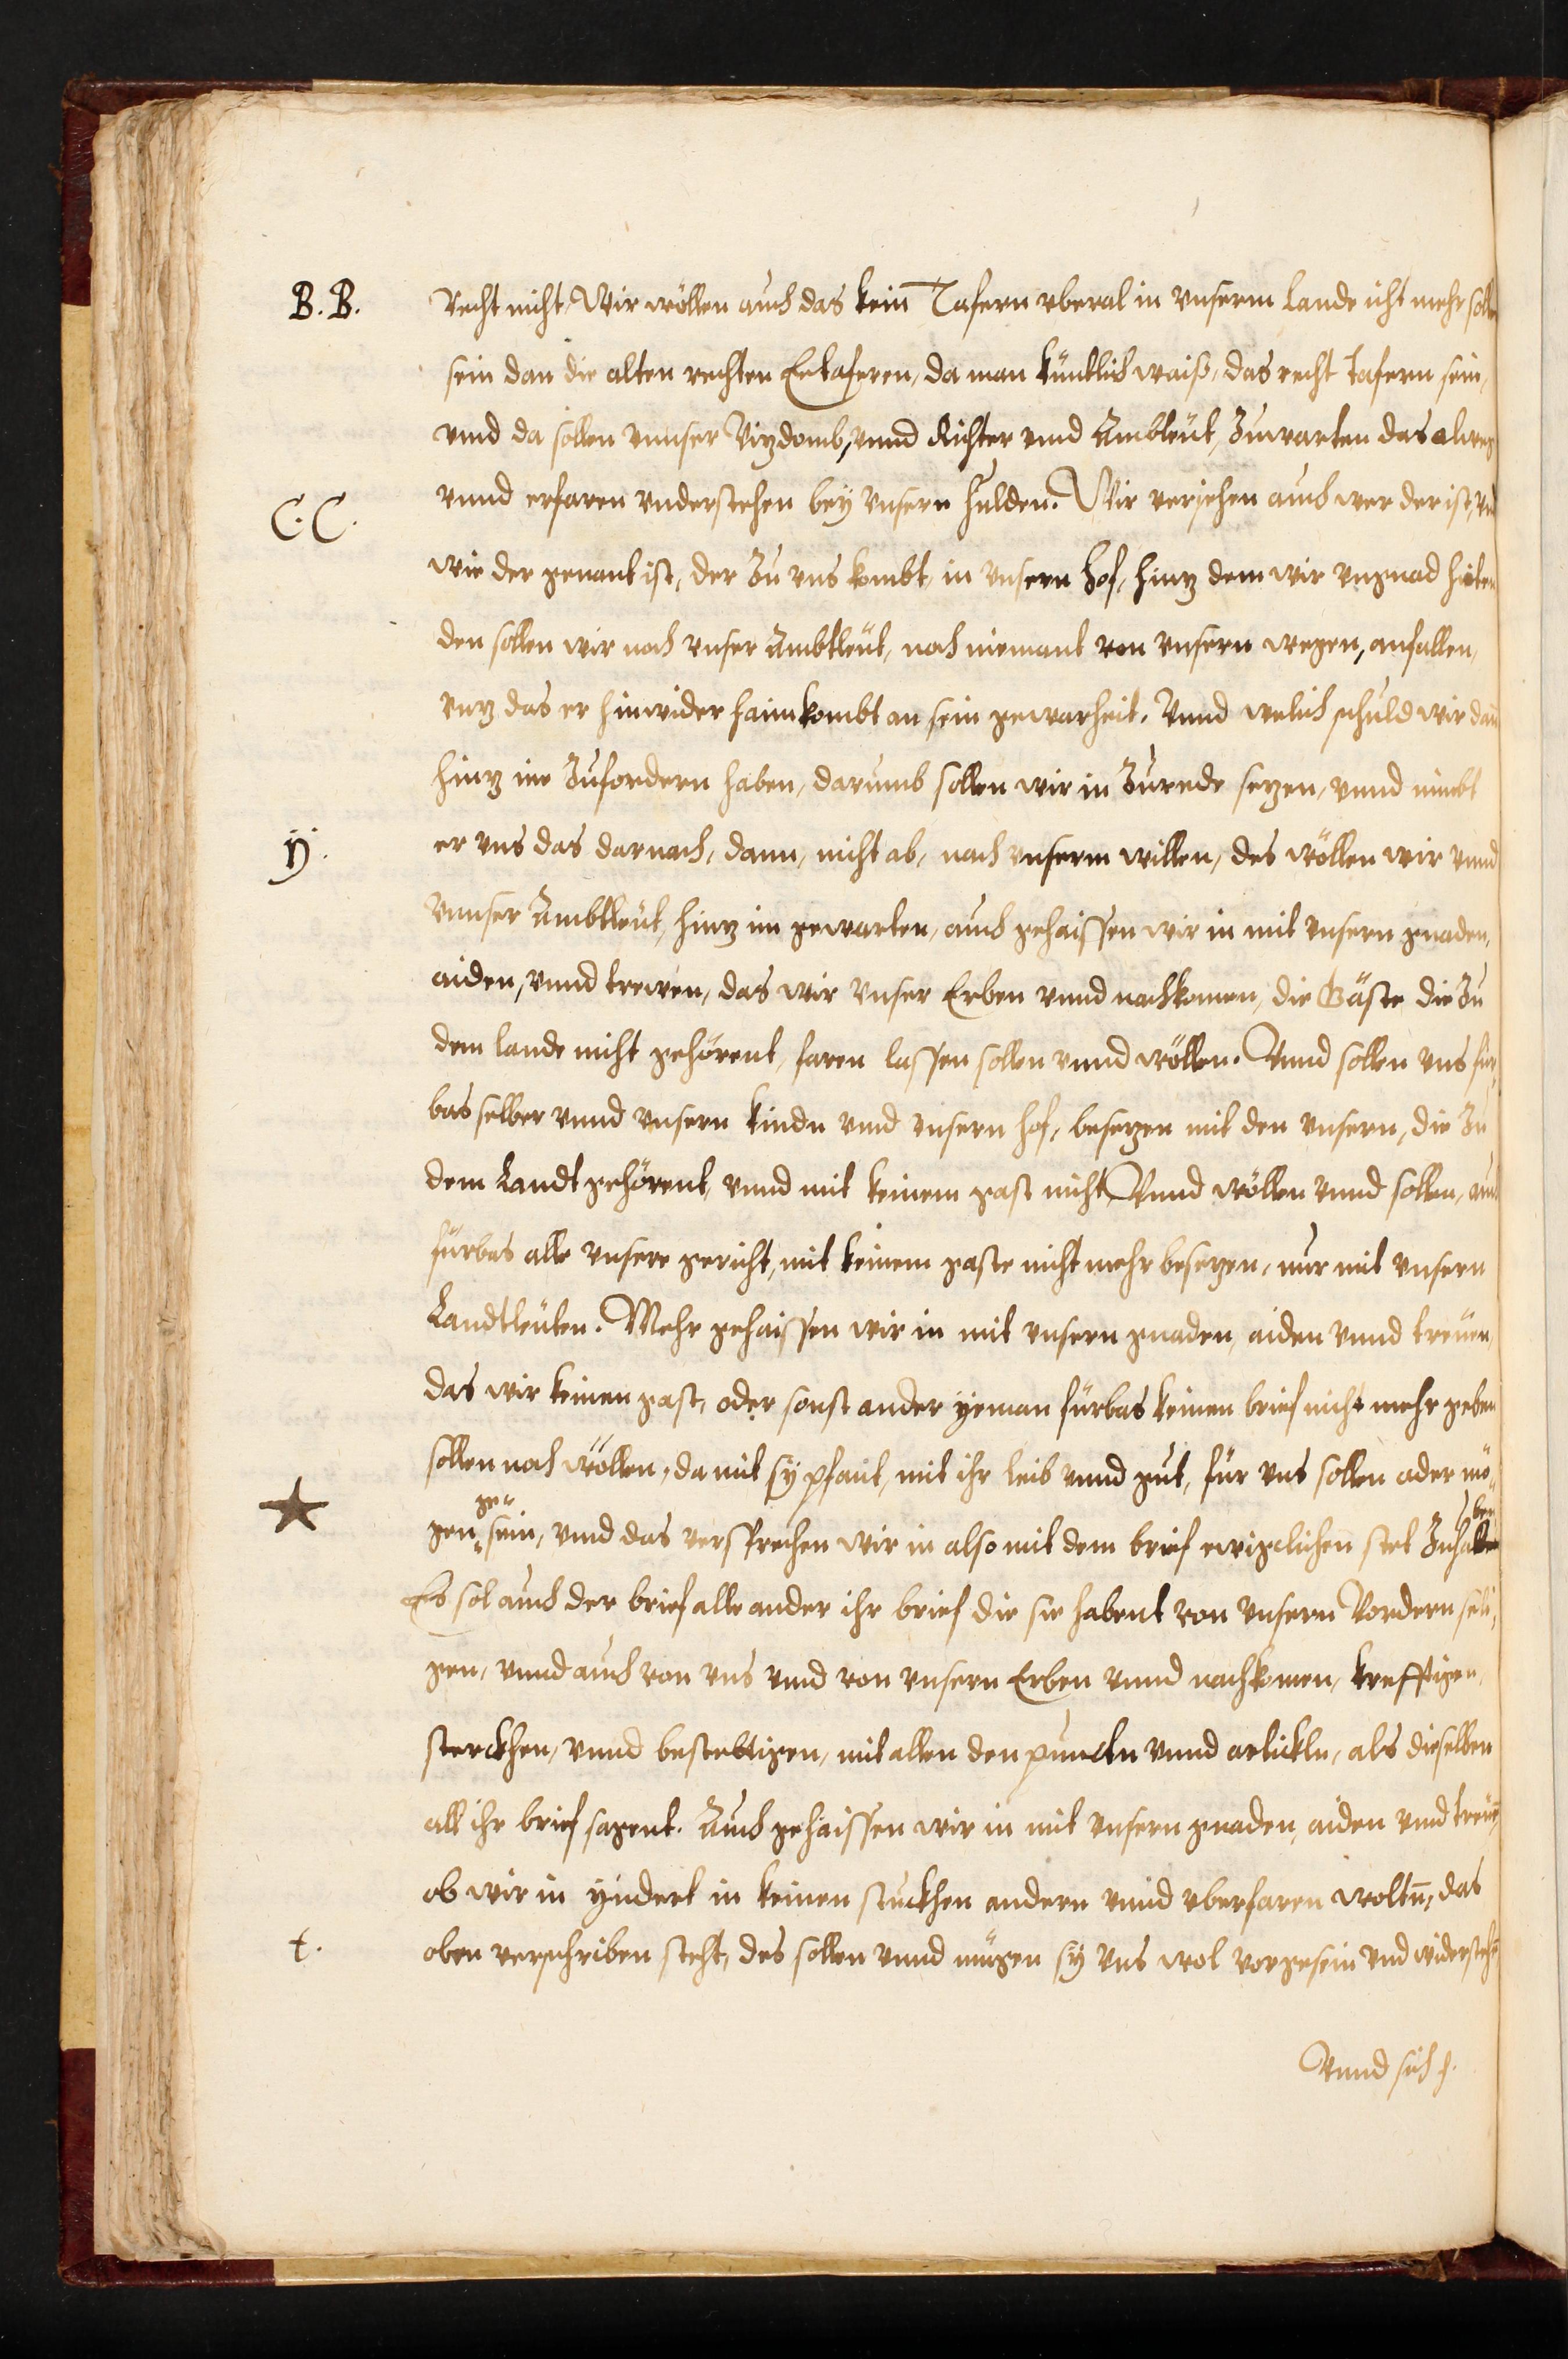 B. B.
Recht nicht, Wir wöllen auch das kein̄ Tafern vberal in vnserm Lande icht mehr solle
sein dan die alten rechten Eetafern, da man küntlich waiß, das recht Tafern sein,
vnnd da sollen vnnser Vizdomb, vnnd Richter vnnd Ambtleüt, Zuwarten das alweg
C. C.
vnnd erfaren vnderstehen bey vnsern hulden. Wir verjehen auch wer der ist, vn̄
wie der genant ist, der Zu vns kombt, in vnsern Hof, hinz dem wir vngnad hieten
den sollen wir noch vnser Ambtleüt, noch niemant von vnsern wegen, anfallen,
vnz das er hinwider haimkombt an sein gewarheit, Vnnd welich schuld wir dan̄
hinz im Zufordern haben, darumb sollen wir in Zurede sezen, vnnd nimbt
er vns das darnach, dann, nicht ab, nach vnserm willen, des wöllen wir vnnd
Vnnser Ambtleüt, hinz im gewarten, auch gehaissen wir in mit vnsern gnaden,
aiden, vnnd trewen, das wir Vnser Erben vnnd nachkomen, die Gäste die Zu
dem lande nicht gehörent, faren lassen sollen vnnd wöllen. Vnnd sollen vns für,
bas selber vnnd vnsern kindn vnnd vnsern hof, besezen mit den vnsern, die Zu
dem Landt gehörent, vnnd mit keinem gast nicht, Vnnd wöllen vnnd sollen, auch
fürbas alle vnsere gericht, mit keinem gaste nicht mehr besezen, nur mit vnsern
Landtleüten. Mehr gehaissen wir in mit vnsern gnaden, aiden vnnd treüen,
das wir keinen gast, oder sonst ander yeman fürbas keinen brief nicht mehr geben
sollen noch wöllen, da mit sy pfant, mit ihr leib vnnd gut, für vns sollen oder mö,
gen ge sein, vnnd das versprechen wir in also mit dem brief ewigclichen stet Zuhalten
Es sol auch der brief alle ander ihr brief die sie habent von vnsern Vordern seli,
gen, vnnd auch von vns vnnd von vnsern Erben vnnd nachkomen, krefftigen,
sterckhen, vnnd bestettigen, mit allen den puncktn vnnd artickln, als dieselben
all ihr brief sagent. Auch gehaissen wir in mit vnsern gnaden, aiden vnnd treüe,
ob wir in yndert in keinen stuckhen andern vnnd vberfaren woltn̄, das
t.
oben verschriben steht, des sollen vnnd mügen sy vns wol vorgesein vnd widerstehn̄
Vnnd sich